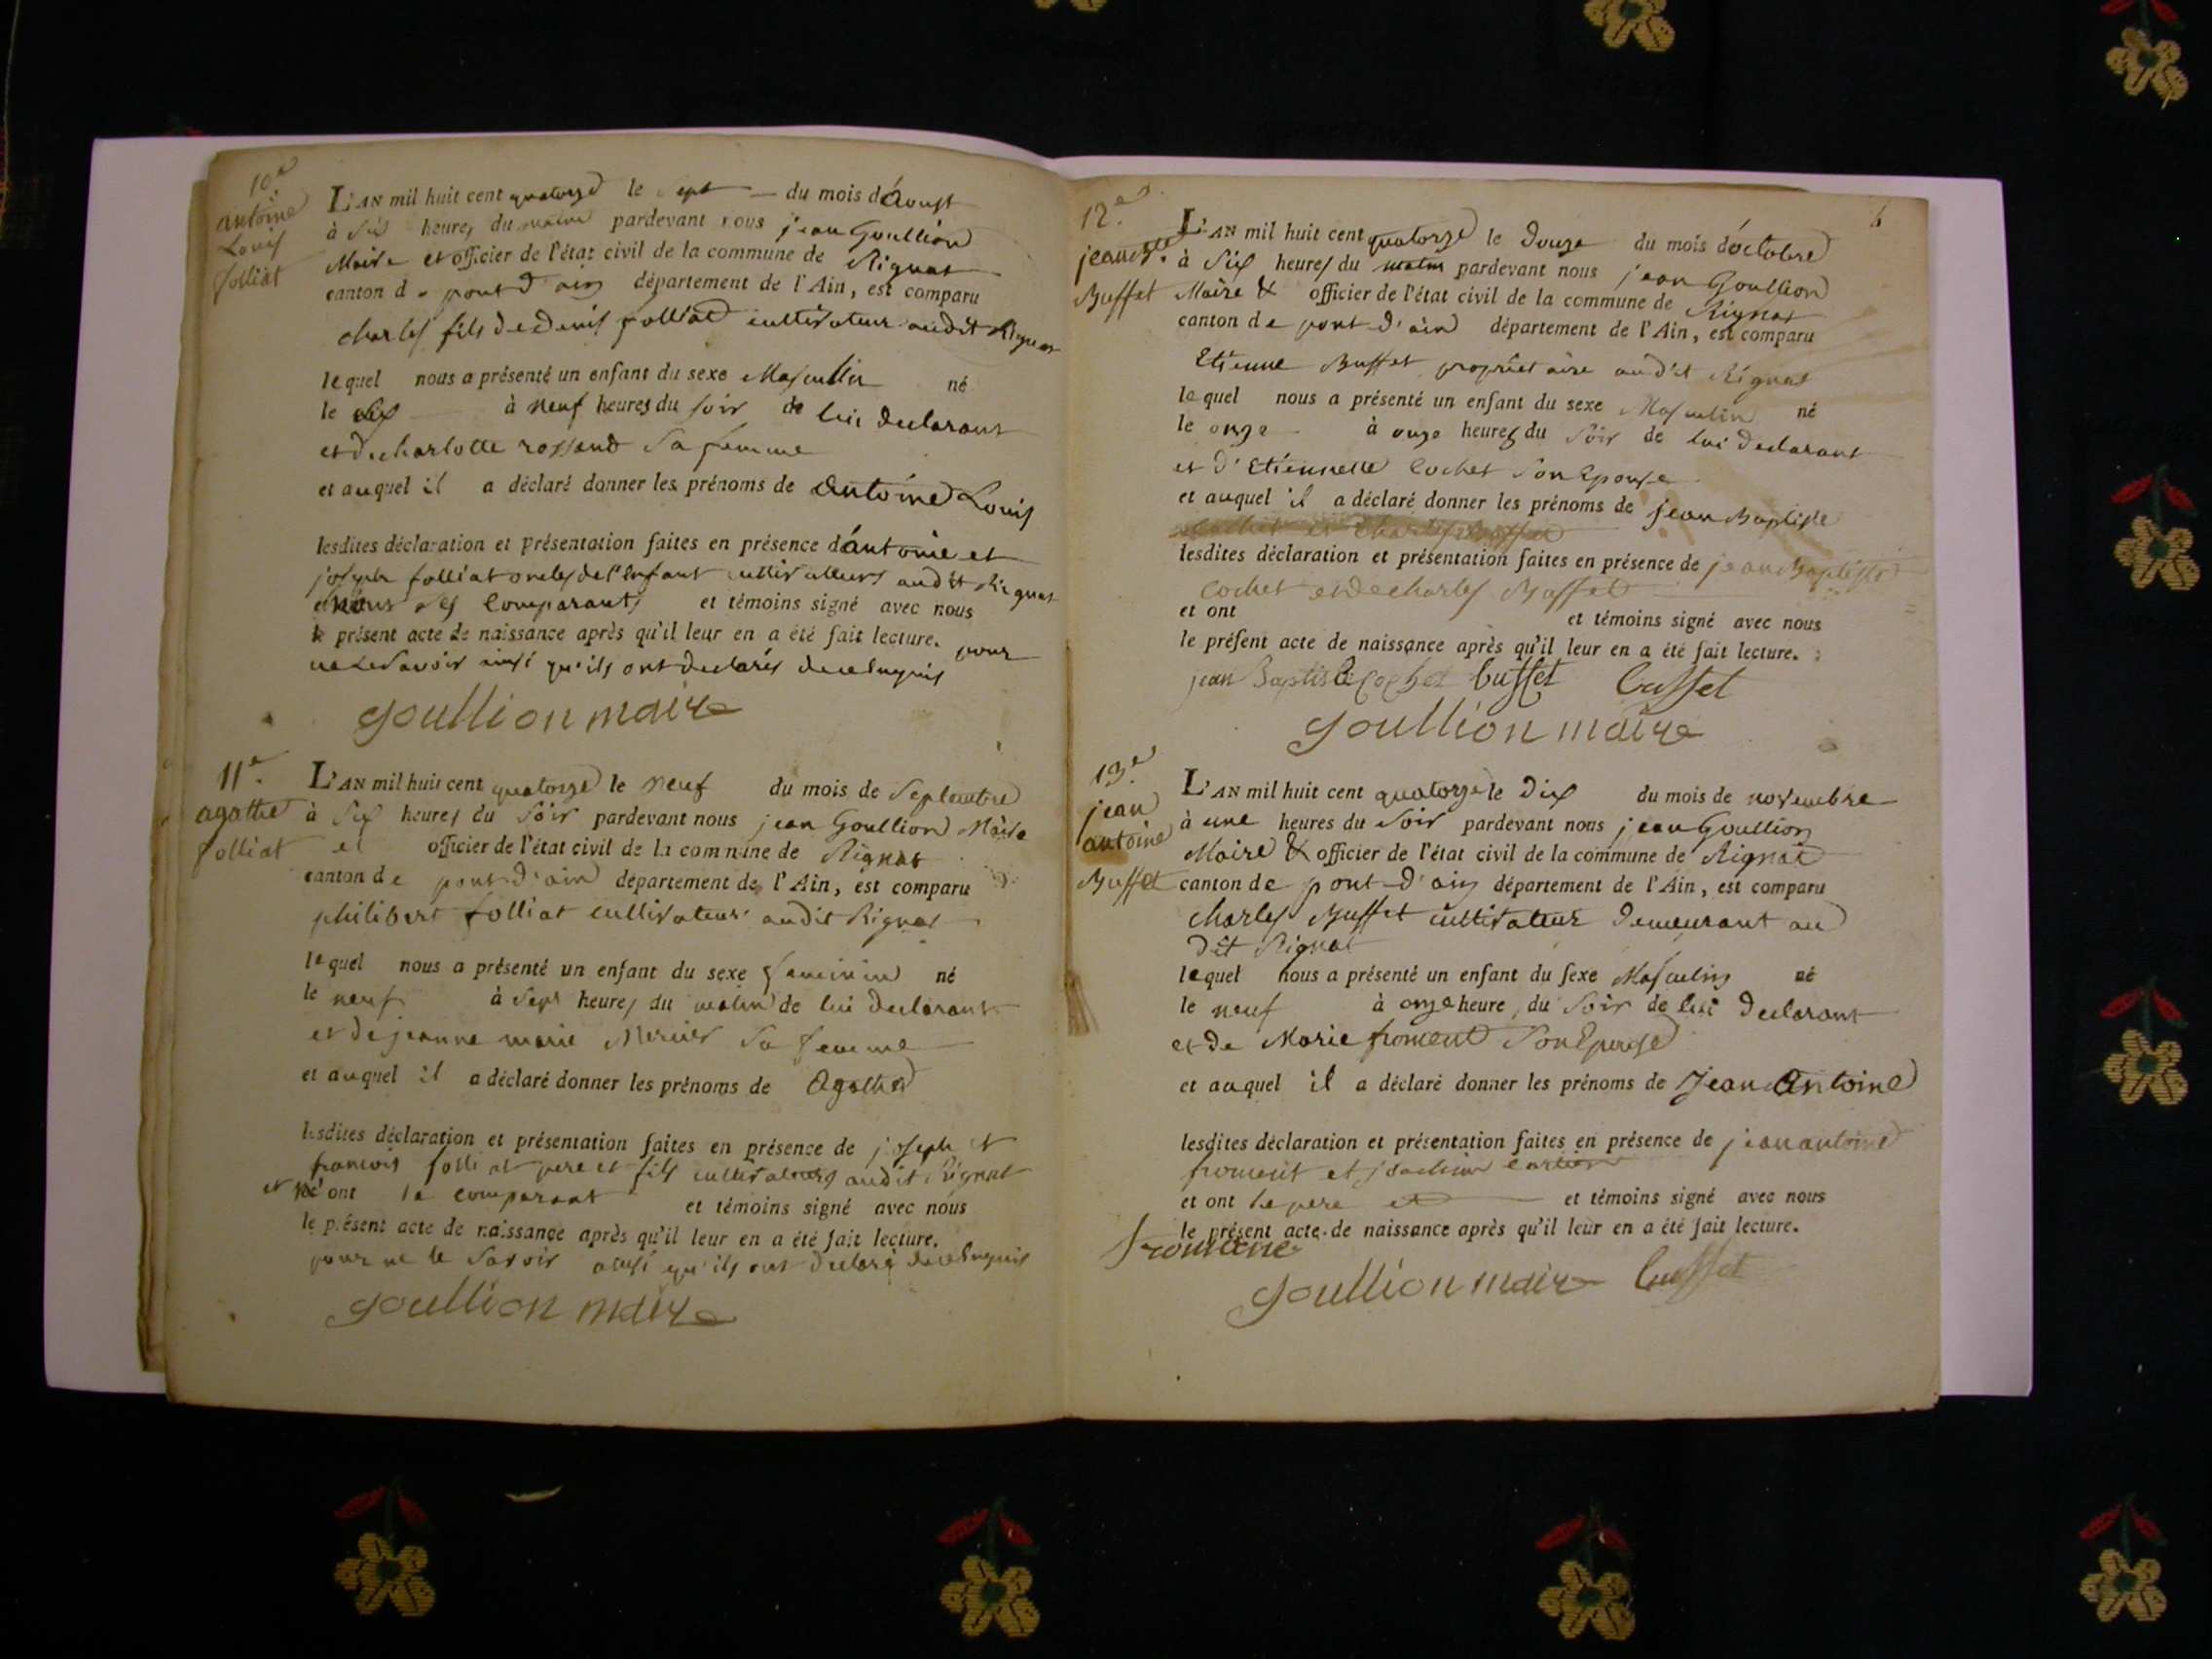 10e
antoine
Louis
folliat
L'AN mil huit cent quatorze le sept du mois d'aoust
à six heures du matin pardevant nous jean Goullion
Maire et officier de l'état civil de la commune de Rignat
canton de pont d'ain département de l'Ain, est comparu
charles fils de denis folliat cultivateur audit Rignat
lequel nous a présenté un enfant du sexe Masculin né
le six à neuf heures du soir de lui declarant
et de charlotte rossand sa femme
et auquel il a déclaré donner les prénoms de antoine Louis
lesdites déclaration et présentation faites en présence d'antoine et
joseph folliat oncles de l'enfant cultivateurs audit Rignat
les comparants et témoins signé avec nous
le présent acte de naissance après qu'il leur en a été fait lecture. pour
ne le savoir ainsi qu'ils ont declarés de ce enquis
goullion maire
11e.
agathe
folliat
L'AN mil huit cent quatorze le neuf du mois de septembre
à six heures du soir pardevant nous jean Goullion Maire
et officier de l'état civil de la commune de Rignat
canton de pont-d'ain département de l'Ain, est comparu
philibert folliat cultivateur audit Rignat
lequel nous a présenté un enfant du sexe feminin né
le neuf à sept heures du matin de lui declarant
et de jeanne marie Mercier sa femme
et auquel il a déclaré donner les prénoms de Agathe
lesdites déclaration et présentation faites en présence de joseph et
francois folliat pere et fils cultivateurs audit Rignat
et n'ont le comparant et témoins signé avec nous
le présent acte de naissance après qu'il leur en a été fait lecture.
pour ne le savoir ainsi qu'ils ont declaré de ce enquis
goullion maire
6
12e.
jean Bte.
Buffet
L'AN mil huit cent quatorze le douze du mois d'octobre
à six heures du matin pardevant nous jean Goullion
Maire & officier de l'état civil de la commune de Rignat
canton de pont-d'ain département de l'Ain, est comparu
Etienne Buffet propriétaire audit Rignat
lequel nous a présenté un enfant du sexe Masculin né
le onze à onze heures du soir de lui declarant
et d'Etiennette Cochet son Epouse
et auquel il a déclaré donner les prénoms de jean Baptiste
lesdites déclaration et présentation faites en présence de jean Baptiste
Cochet et de charles Buffet
et ont et témoins signé avec nous
le présent acte de naissance après qu'il leur en a été fait lecture.
jean Baptiste Cochet buffet buffet
goullion maire
13e.
jean
antoine
Buffet
L'AN mil huit cent quatorze le dix du mois de novembre
à une heures du soir pardevant nous jean Goullion
Maire & officier de l'état civil de la commune de Rignat
canton de pont-d'ain département de l'Ain, est comparu
charles Buffet cultivateur demeurant au
dit Rignat
lequel nous a présenté un enfant du sexe Masculin né
le neuf à onze heure, du soir de lui declarant
et de Marie froment son Epouse
et auquel il a déclaré donner les prénoms de Jean Antoine
lesdites déclaration et présentation faites en présence de jean antoine
froment et joachim
et ont le pere et et témoins signé avec nous
le présent acte de naissance après qu'il leur en a été fait lecture.
goullion maire buffet